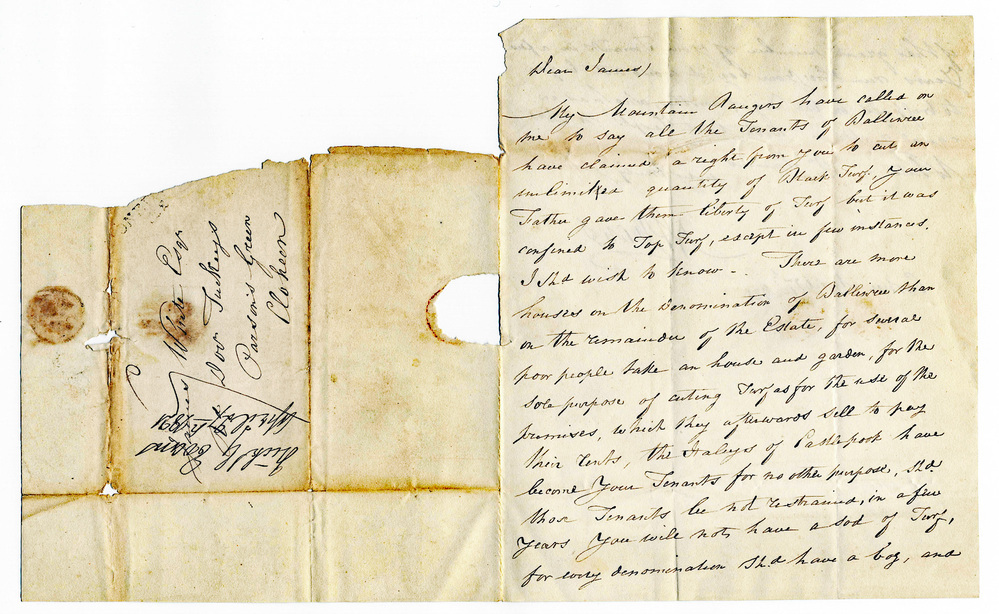 Dear James,
My Mountain Rangers have called on
me to say all the Tenants of Ballinree
have claimed a right from you to cut an
unlimited quantity of Black Turf, Your
Father gave them liberty of Turf but it was
confined to Top Turf, except in few instances.
I Shd wish to know -. There are more
houses on the Denomination of Ballinree than
on the remainder of the Estate, for
poor people take an house and garden, for the
sole purpose of cuting Turf as for the use of the
premises, which they afterwards sell to pay
their rents, the Haleys of Castlepook have
become Your Tenants for no other purpose, Shd.
those Tenants be not restrained, in a few
Years You will not have a sod of Turf,
for every denomination Shd. have a bog, and
James White Esqr.
Dov Tuckeys
Parson's Green
Cloheen
1831